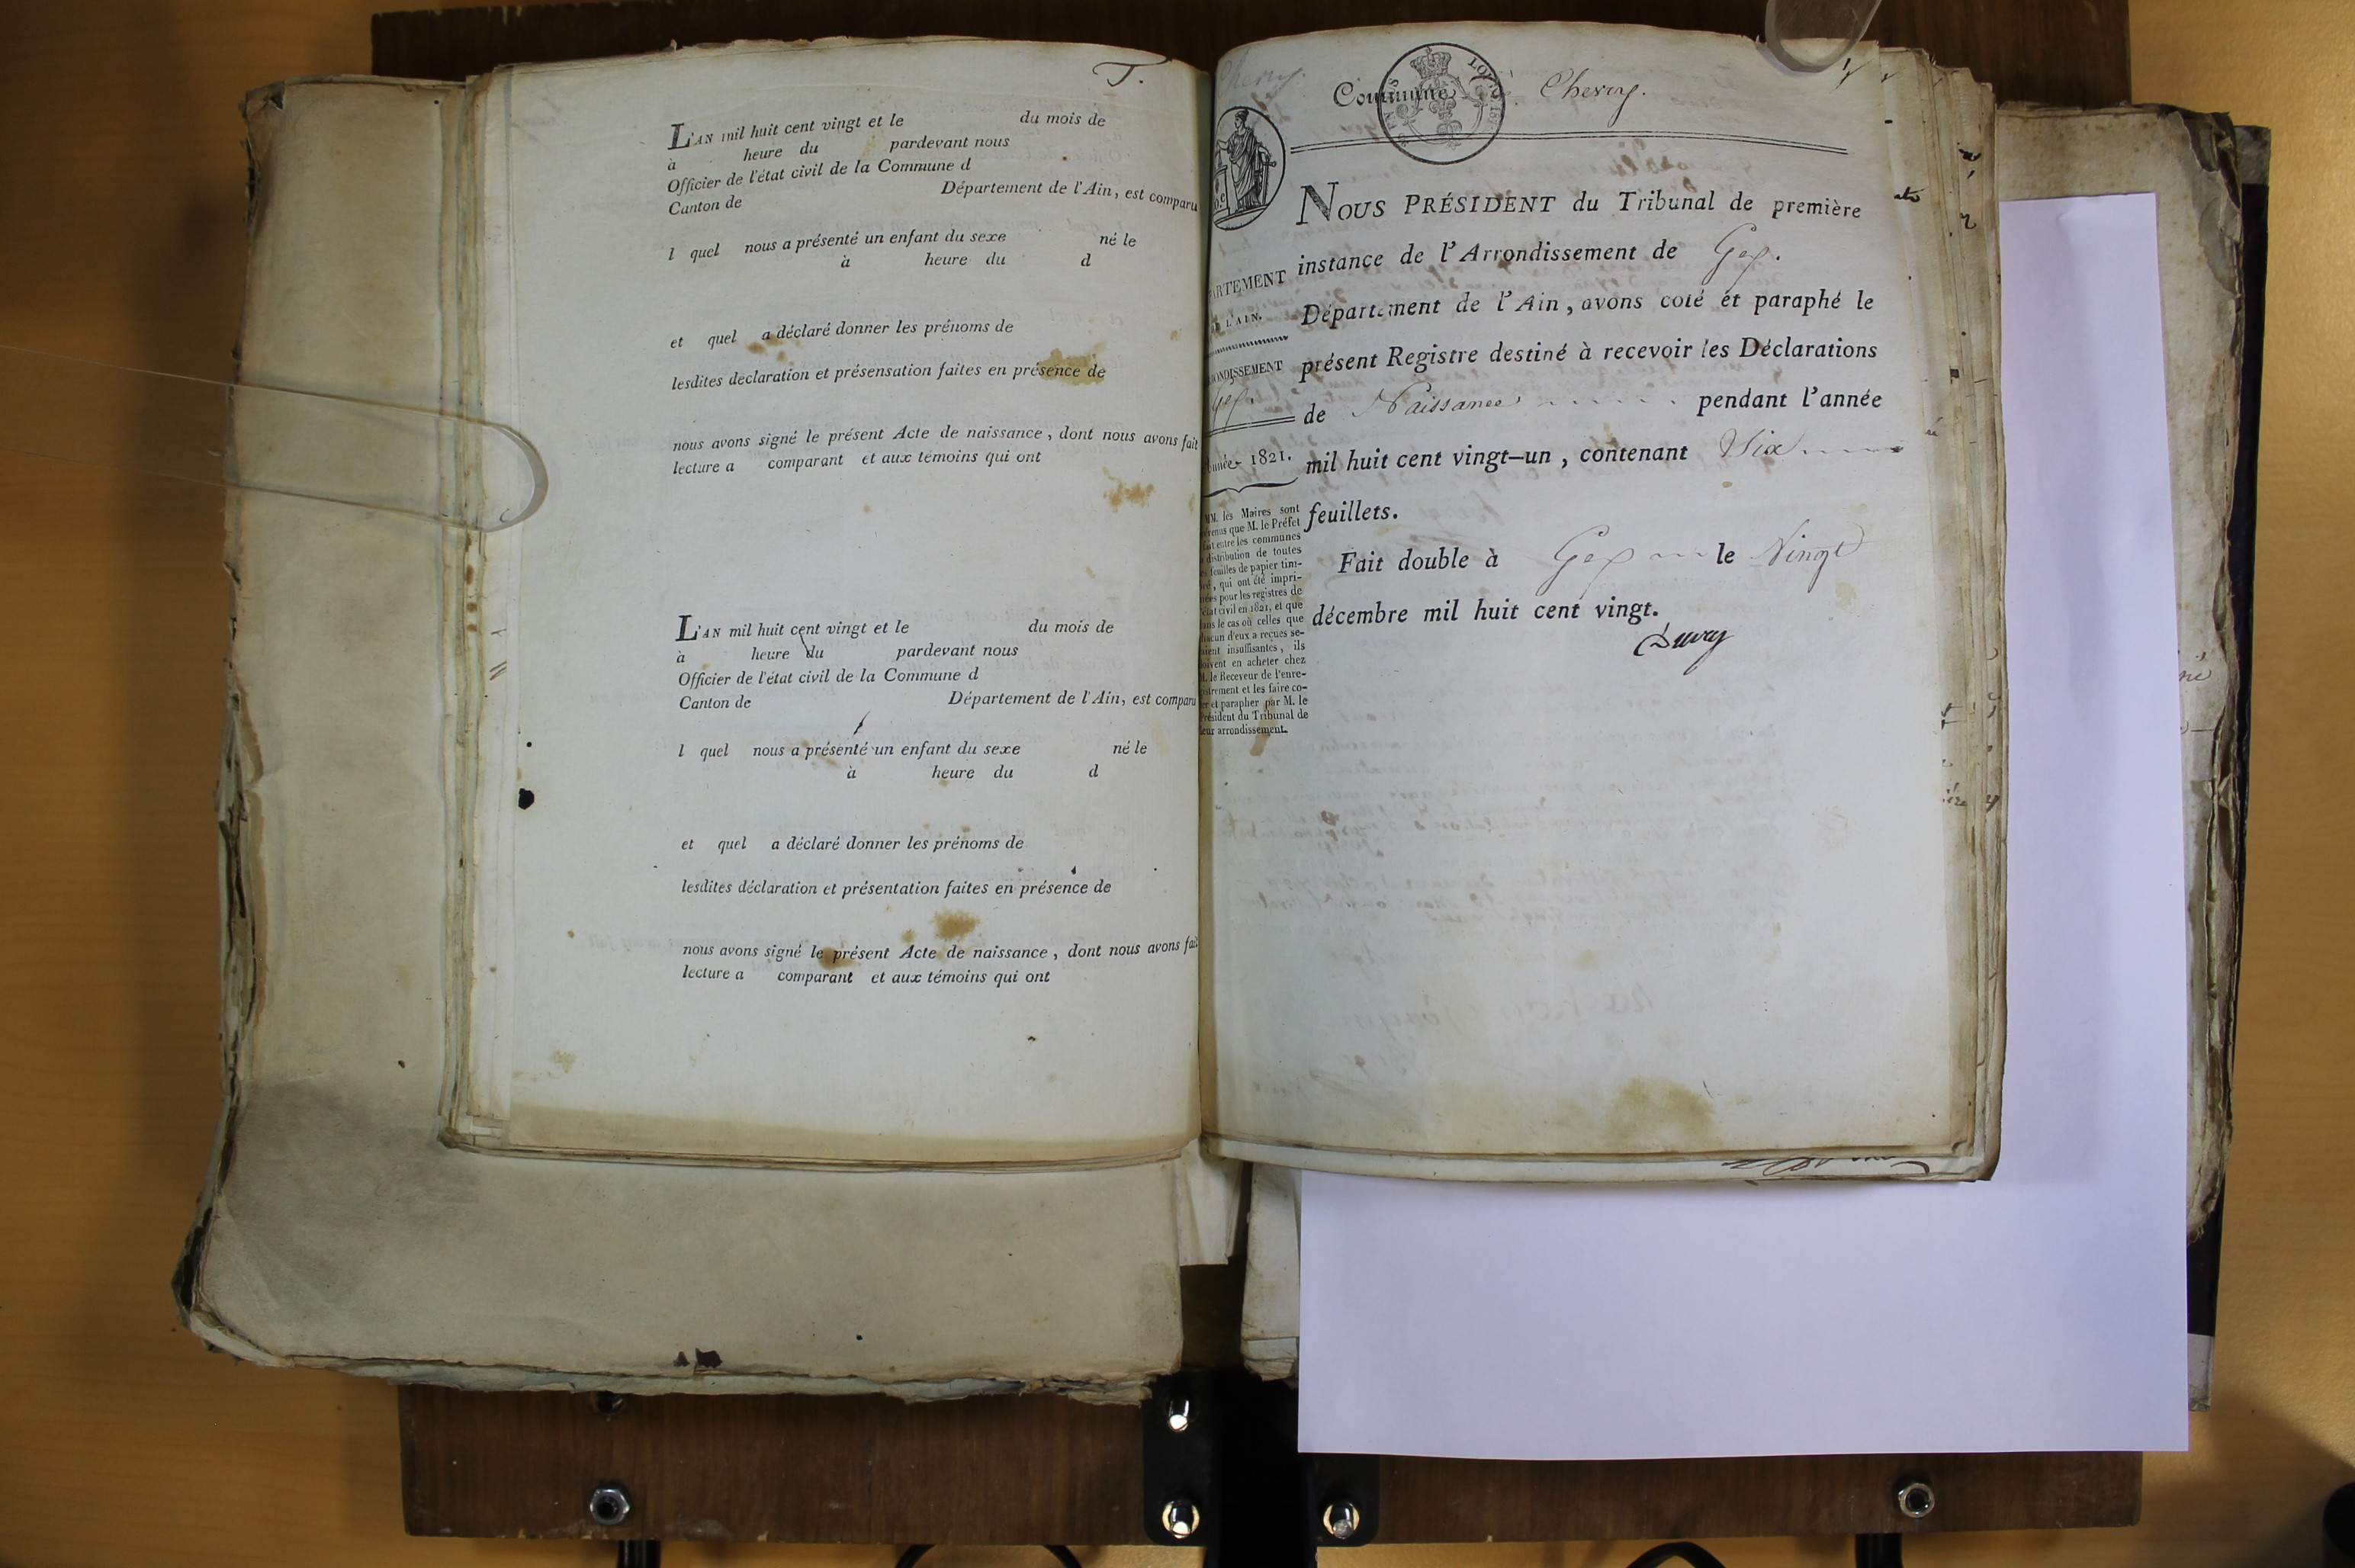 T.
L'AN mil huit cent vingt et le du mois de
à heure du pardevant nous
Officier de l'état civil de la Commune d
Canton de Département de l'Ain, est comparu
l quel nous a présenté un enfant du sexe né le
à heure du d
et quel a déclaré donner les prénoms de
lesdites declaration et présensation faites en présence de
nous avons signé le présent Acte de naissance, dont nous avons fait
lecture a comparant et aux témoins qui ont
L'AN mil huit cent vingt et le du mois de
à heure du pardevant nous
Officier de l'état civil de la Commune d
Canton de Département de l'Ain, est comparu
l quel nous a présenté un enfant du sexe né le
à heure du d
et quel a déclaré donner les prénoms de
lesdites déclaration et présentation faites en présence de
nous avons signé le présent Acte de naissance, dont nous avons fait
lecture a comparant et aux témoins qui ont
Commune Chevry.
NOUS PRÉSIDENT du Tribunal de première
instance de l'Arrondissement de Gex.
Département de l'Ain, avons coté et paraphé le
présent Registre destiné à recevoir les Déclarations
de Naissance pendant l'année
mil huit cent vingt-un, contenant Six
feuillets.
Fait double à Gex le Vingt
décembre mil huit cent vingt.
ARTEMENT
L'AIN.
ONDISSEMENT
Gex.
nnée 1821.
MM. les Maires sont
venus que M. le Préfet
ait entre les communes
distribution de toutes
feuilles de papier tim-
, qui ont été impri-
ées pour les registres de
état civil en 1821, et que
ans le cas où celles que
hacun d'eux a reçues se-
aient insuffisantes, ils
doivent en acheter chez
M. le Receveur de l'enre-
istrement et les faire co-
er et parapher par M. le
Président du Tribunal de
leur arrondissement.